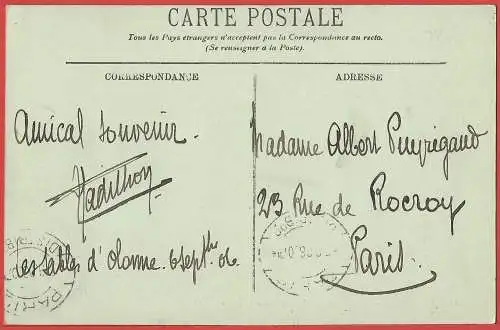 CARTE POSTALE
Tous les Pays étrangers n'acceptent pas la Correspondance au recto.
(Se renseigner à la Poste).
CORRESPONDANCE
Amical souvenir.
Les Sables d'Olonne. 6 Septbre 06.
ADRESSE
Madame Albert Puyrigaud
23 Rue de Rocroy
Paris.